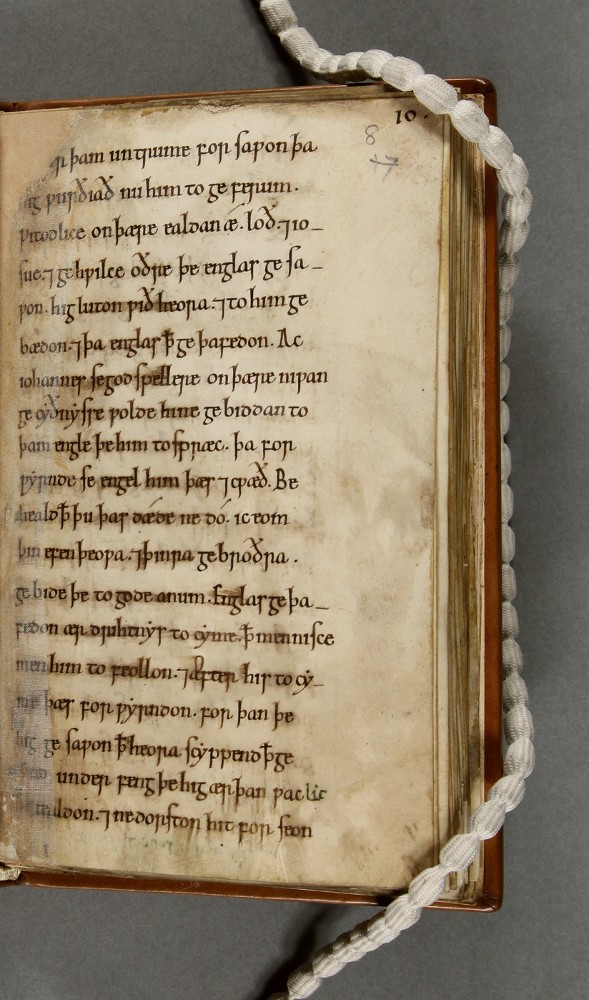 10.
8
17
ær þam untrume forsaƿon þa
hig ƿurðiað nu him to geferum.
ƿitodlice on þære ealdan æ. loð. ⁊ io_
sue. ⁊ gehƿilce oðre þe englas gesa_
ƿon. hig luton ƿið heora. ⁊ to him ge
bædon. ⁊ þa englas ꝥ geþafedon. Ac
iohannes se godspellere on þære niƿan
gecyðnysse ƿolde hine gebiddan to
þam engle þe him to spræc. þa for
ƿyrnde se engel him þæs ⁊ cƿæð. Be
heald ꝥ þu þas dǽde ne dó. ic eom
þin efen þeoƿa. ⁊ þinra gebroðra.
gebide þe to gode anum. Englas geþa_
fedon ær drihtnys to cyme. ꝥ mennisce
men him to feollon. ⁊ æfter his to cy_
me þæs forƿyrndon. for þan þe
hig gesaƿon ꝥ heora scyppend ꝥ ge
under feng þe hig ær þan ƿaclic
tealdon. ⁊ ne dorston hit forseon